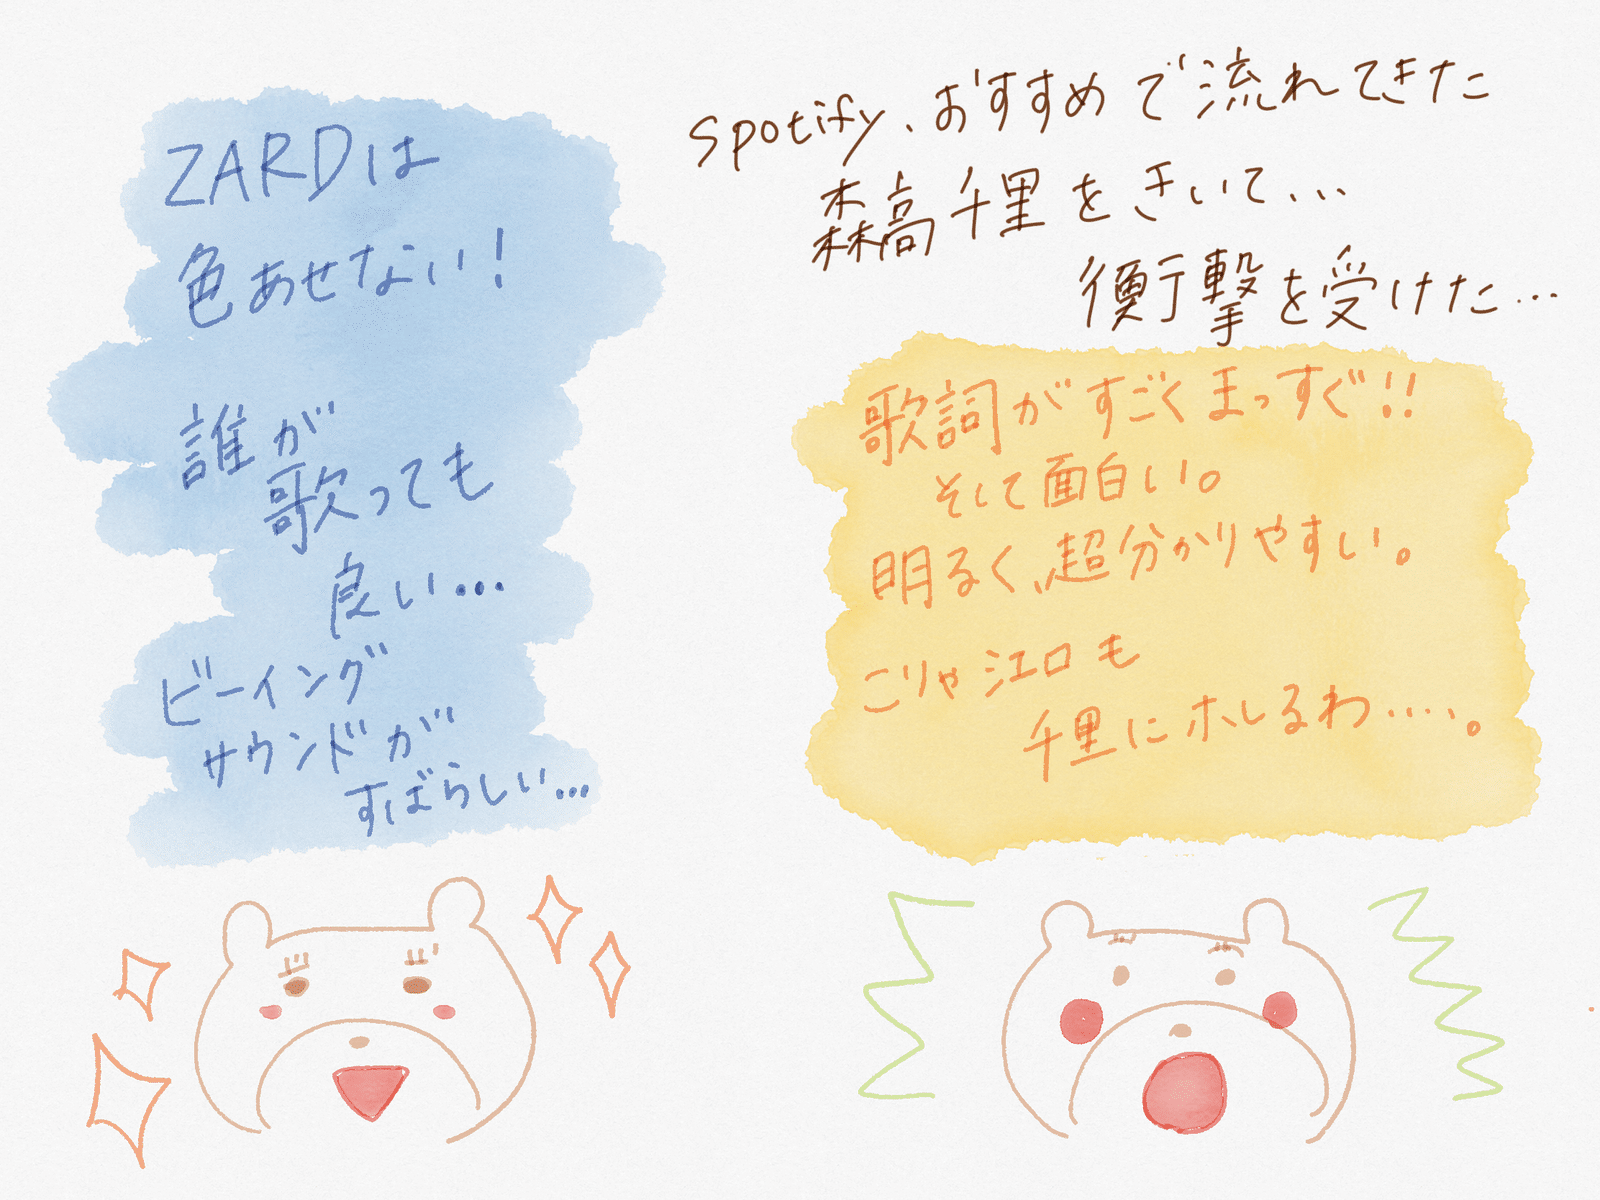 ZARDは
色あせない！
誰が
歌っても
良い…
ビーイング
サウンドが
すばらしい…
Spotify、おすすめで流れてきた
森高千里をきいて…
衝撃を受けた…
歌詞がすごくまっすぐ!!
そして面白い。
明るく、超分かりやすい。
こりゃ江口も
千里にホレるわ….。